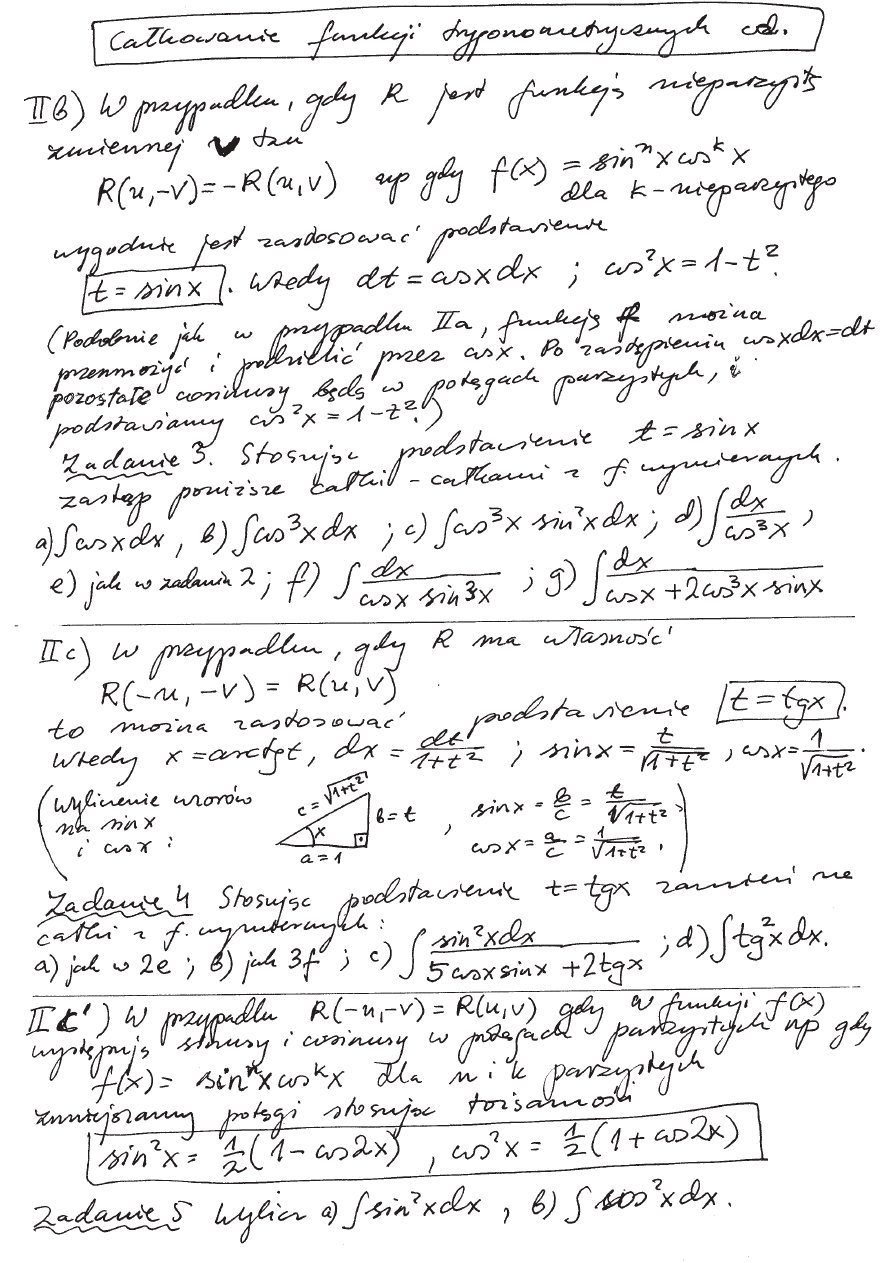 Całkowanie funkcji trygonometrycznych cd.
IIb) W przypadku, gdy R jest funkcją nieparzystą
zmiennej v tzn
R(u,-v)=-R(u,v) np gdy f(x) = sinⁿx cosᵏx
dla k-nieparzystego
wygodnie jest zastosować podstawienie
t = sinx. Wtedy dt = cosxdx ; cos²x = 1-t².
(Podobnie jak w przypadku IIa, funkcję można
przemnożyć i podzielić przez cosx. Po zastąpieniu cosxdx=dt
pozostałe cosinusy będą w potęgach parzystych, i
podstawiamy cos²x = 1-t².)
Zadanie 3. Stosując podstawienie t = sinx
zastąp poniższe całki - całkami z f. wymiernych.
a) ∫cosxdx , b) ∫cos³xdx ; c) ∫cos³x sin²xdx ; d) ∫dx/cos³x ,
e) jak w zadaniu 2 ; f) ∫ dx/(cosx sin³x) ; g) ∫ dx/(cosx+2cos³x sinx)
IIc) W przypadku, gdy R ma własność
R(-u,-v) = R(u,v)
to można zastosować podstawienie t = tgx.
Wtedy x = arctgt, dx = dt/(1+t²) ; sinx = t/√(1+t²) , cosx = 1/√(1+t²).
(Wyliczenie wzorów
na sinx
i cosx :
c = √(1+t²)
b = t
x
a = 1
, sinx = b/c = t/√(1+t²) ,
cosx = a/c = 1/√(1+t²) . )
Zadanie 4 Stosując podstawienie t = tgx zamień na
całki z f. wymiernych :
a) jak w 2e ; b) jak 3f ; c) ∫ sin²xdx/(5cosxsinx + 2tgx) ; d) ∫tg²xdx.
IIc') W przypadku R(-u,-v) = R(u,v) gdy w funkcji f(x)
występują sinusy i cosinusy w potęgach parzystych np gdy
f(x) = sinⁿxcosᵏx dla n i k parzystych
zmniejszamy potęgi stosując tożsamości
sin²x = 1/2(1 - cos2x) , cos²x = 1/2(1 + cos2x)
Zadanie 5 Wylicz a) ∫sin²xdx , b) ∫cos²xdx.